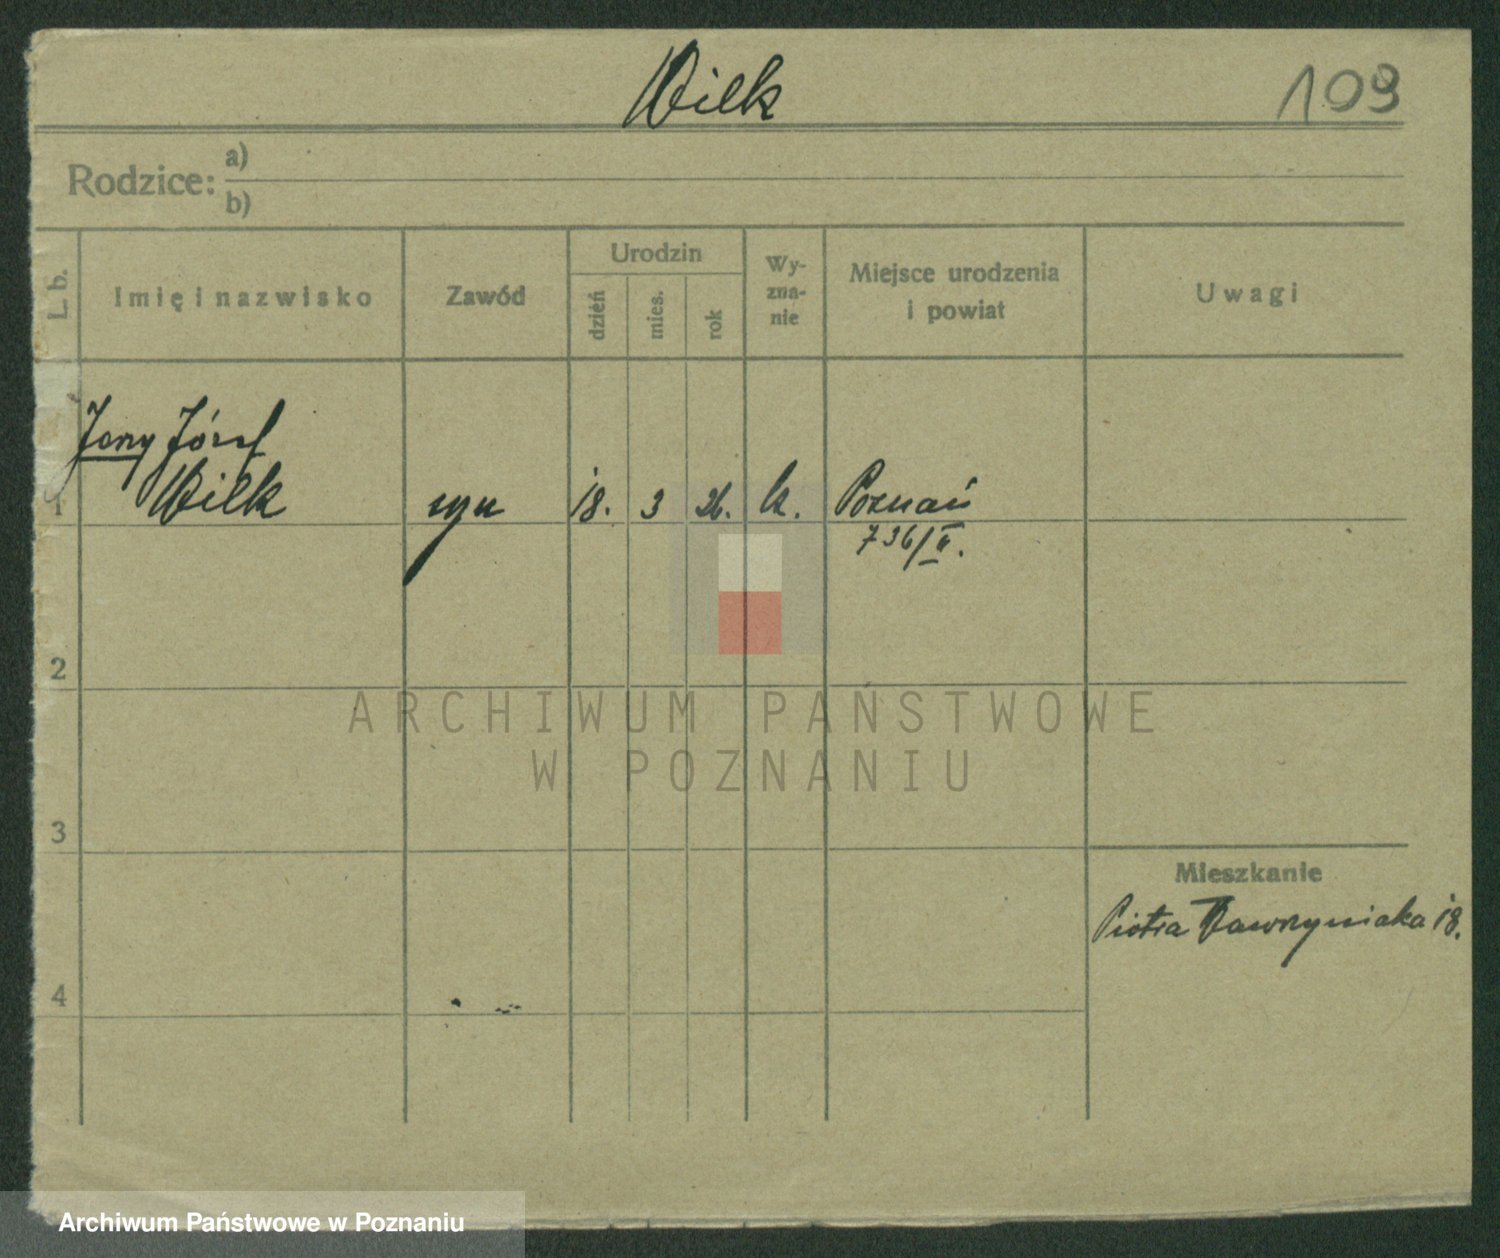 Wilk
109
Rodzice: a)
b)
L. b.
Imię i nazwisko
Zawód
Urodzin
dzień
mies.
rok
Wy-
zna-
nie
Miejsce urodzenia
i powiat
Uwagi
Jerzy Józef
1 Wilk syn 18. 3 26. k. Poznań
736/II.
2
ARCHIWUM PAŃSTWOWE
W POZNANIU
3
Mieszkanie
Piotra Wawrzyniaka 18.
4
Archiwum Państwowe w Poznaniu